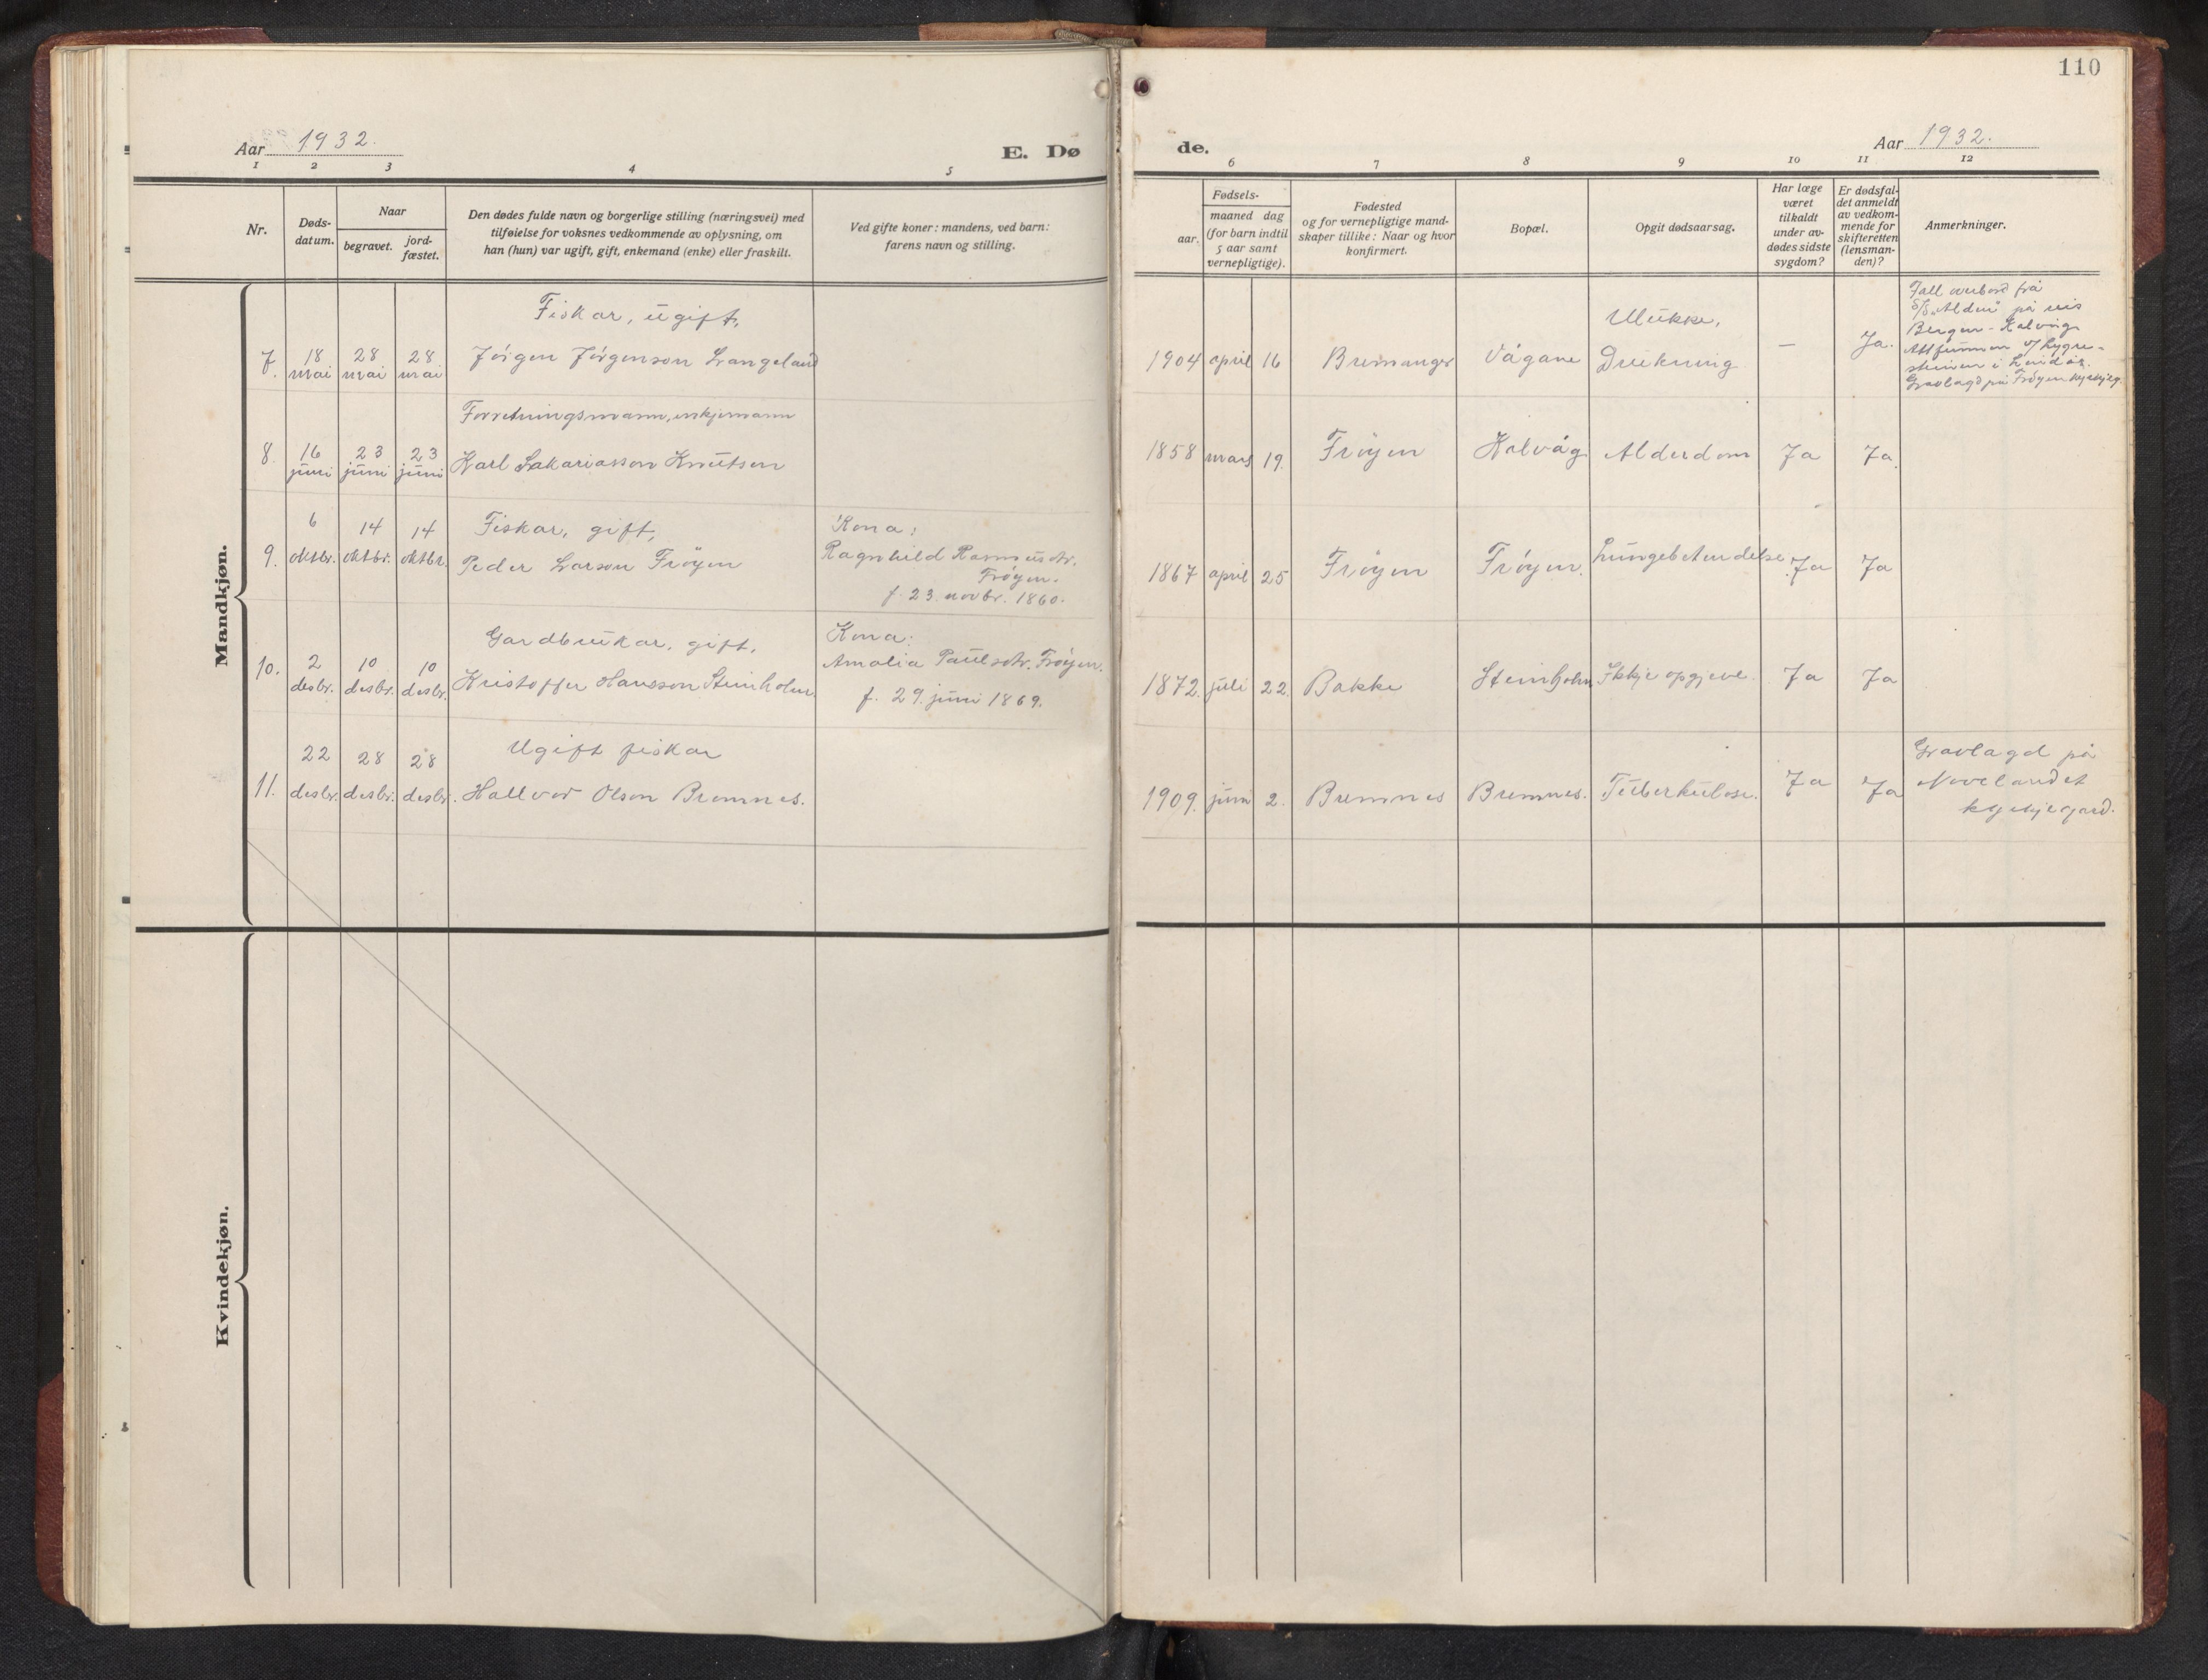 110
Aar 1932.
E. Dø
de.
Aar 1932.
1 2 3 4 5
6 7 8 9 10 11 12
Nr.
Døds-
datum.
Naar
begravet.
jord-
fæstet.
Den dødes fulde navn og borgerlige stilling (næringsvei) med
tilføielse for voksnes vedkommende av oplysning, om
han (hun) var ugift, gift, enkemand (enke) eller fraskilt.
Ved gifte koner: mandens, ved barn:
farens navn og stilling.
Fødsels-
aar.
maaned dag
(for barn indtil
5 aar samt
vernepligtige).
Fødested
og for vernepligtige mand-
skaper tillike: Naar og hvor
konfirmert.
Bopæl.
Opgit dødsaarsag.
Har læge
været
tilkaldt
under av-
dødes sidste
sygdom?
Er dødsfal-
det anmeldt
av vedkom-
mende for
skifteretten
(lensman-
den)?
Anmerkninger.
Mandkjøn.
7. 18 mai 28 mai 28 mai
Fiskar, ugift,
Jörgen Jörgenson Langeland
1904 april 16 Bremanger Vågane
Ulukke,
Drukning
— Ja.
Fall overbord frå
S/S "Alden" på reis
Bergen - Kalvåg
Attfunnen v/ Lygre-
steinen i
Gravlagd på Fröyen kyrkjeg.
8. 16 juni 23 juni 23 juni
Forretningsmann, enkjemann
Karl Sakariasson Knutsen
1858 mars 19. Fröyen Kalvåg Alderdom Ja Ja.
9. 6 oktbr. 14 oktbr. 14 oktbr.
Fiskar, gift,
Peder Larson Fröyen
Kona:
Ragnhild Rasmusdtr.
Fröyen.
f. 23. novbr. 1860.
1867 april 25 Fröyen Fröyen. Lungebetendelse. Ja Ja
10. 2 desbr. 10 desbr. 10 desbr.
Gardbrukar, gift,
Kristoffer Hansson Steinholm.
Kona:
Amalia Paulsdtr. Fröyen.
f. 29. juni 1869.
1872. juli 22. Bakke Steinholm Ikkje opgjeve. Ja Ja
11. 22 desbr. 28 desbr. 28 desbr.
Ugift fiskar
Hallvor Olson Bremnes.
1909. juni 2. Bremnes Bremnes. Tuberkulose. Ja Ja
Gravlagd på
Novelandet
kyrkjegard.
Kvindekjøn.